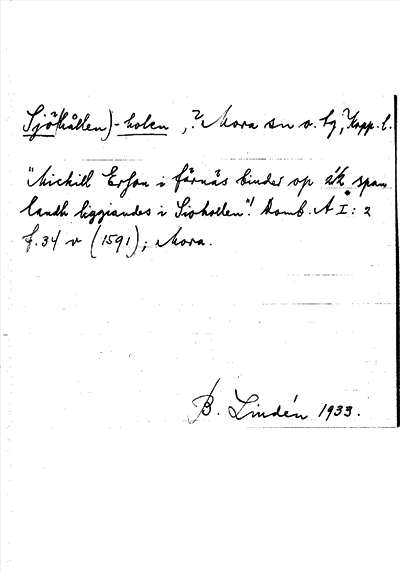 Sjö(hållen)-holen, ? Mora sn o. tg, Kopp. l.
"Michill Erson i färnäs binder op 2½ span
landh liggiandes i Sioholen"! Domb. A I: 2
f. 34 v (1591); Mora.
B. Lindén 1933.